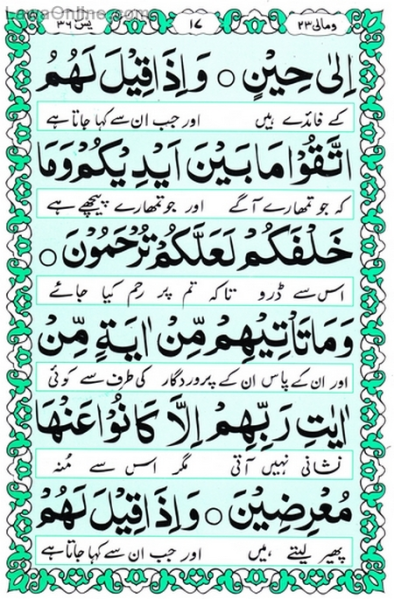 LegaOnline.com
ومالی ۲۳ ۱۷ یٰس ۳۶
اِلٰى حِيْنٍ ○ وَاِذَا قِيْلَ لَهُمُ
کے فائدے ہیں اور جب ان سے کہا جاتا ہے
اتَّقُوْا مَا بَيْنَ اَيْدِيْكُمْ وَمَا
کہ جو تمھارے آگے اور جو تمھارے پیچھے ہے
خَلْفَكُمْ لَعَلَّكُمْ تُرْحَمُوْنَ ○
اس سے ڈرو تاکہ تم پر رحم کیا جائے
وَمَا تَاْتِيْهِمْ مِّنْ اٰيَةٍ مِّنْ
اور ان کے پاس ان کے پروردگار کی طرف سے کوئی
اٰيٰتِ رَبِّهِمْ اِلَّا كَانُوْا عَنْهَا
نشانی نہیں آتی مگر اس سے منہ
مُعْرِضِيْنَ ○ وَاِذَا قِيْلَ لَهُمْ
پھیر لیتے ہیں، اور جب ان سے کہا جاتا ہے